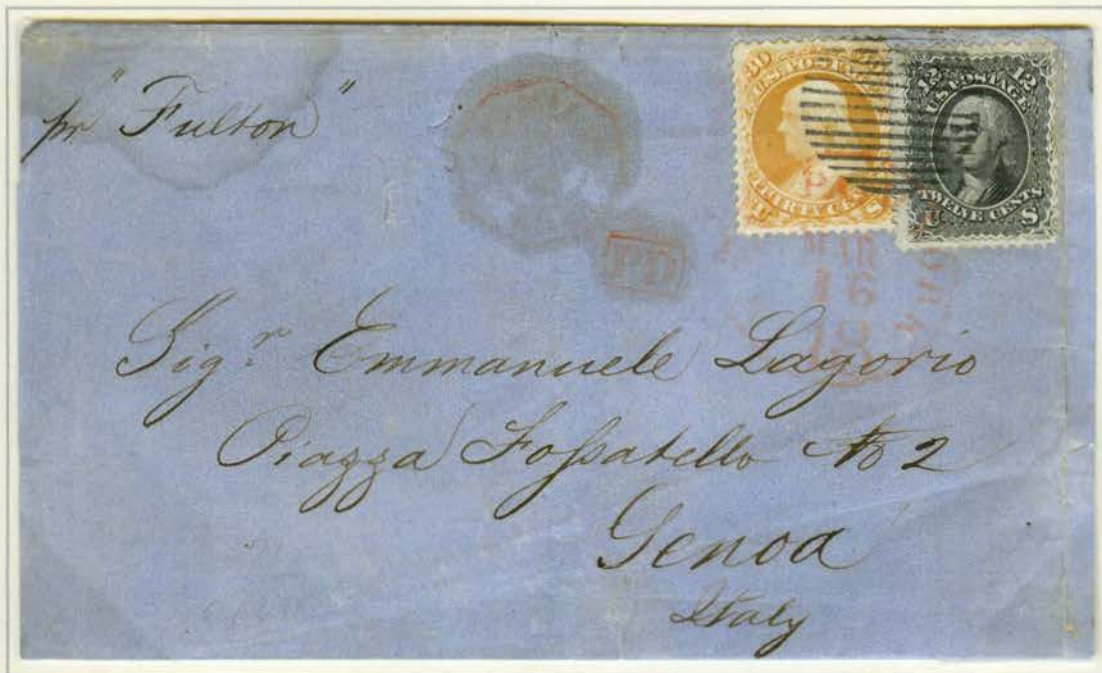 pr "Fulton"
30
U.S. POSTAGE
THIRTY CENTS
U S
12 12
U.S. POSTAGE
TWELVE CENTS
U S
PD
MAR
16
18
Sigr. Emmanuele Lagorio
Piazza Foſsatello No 2
Genoa
Italy